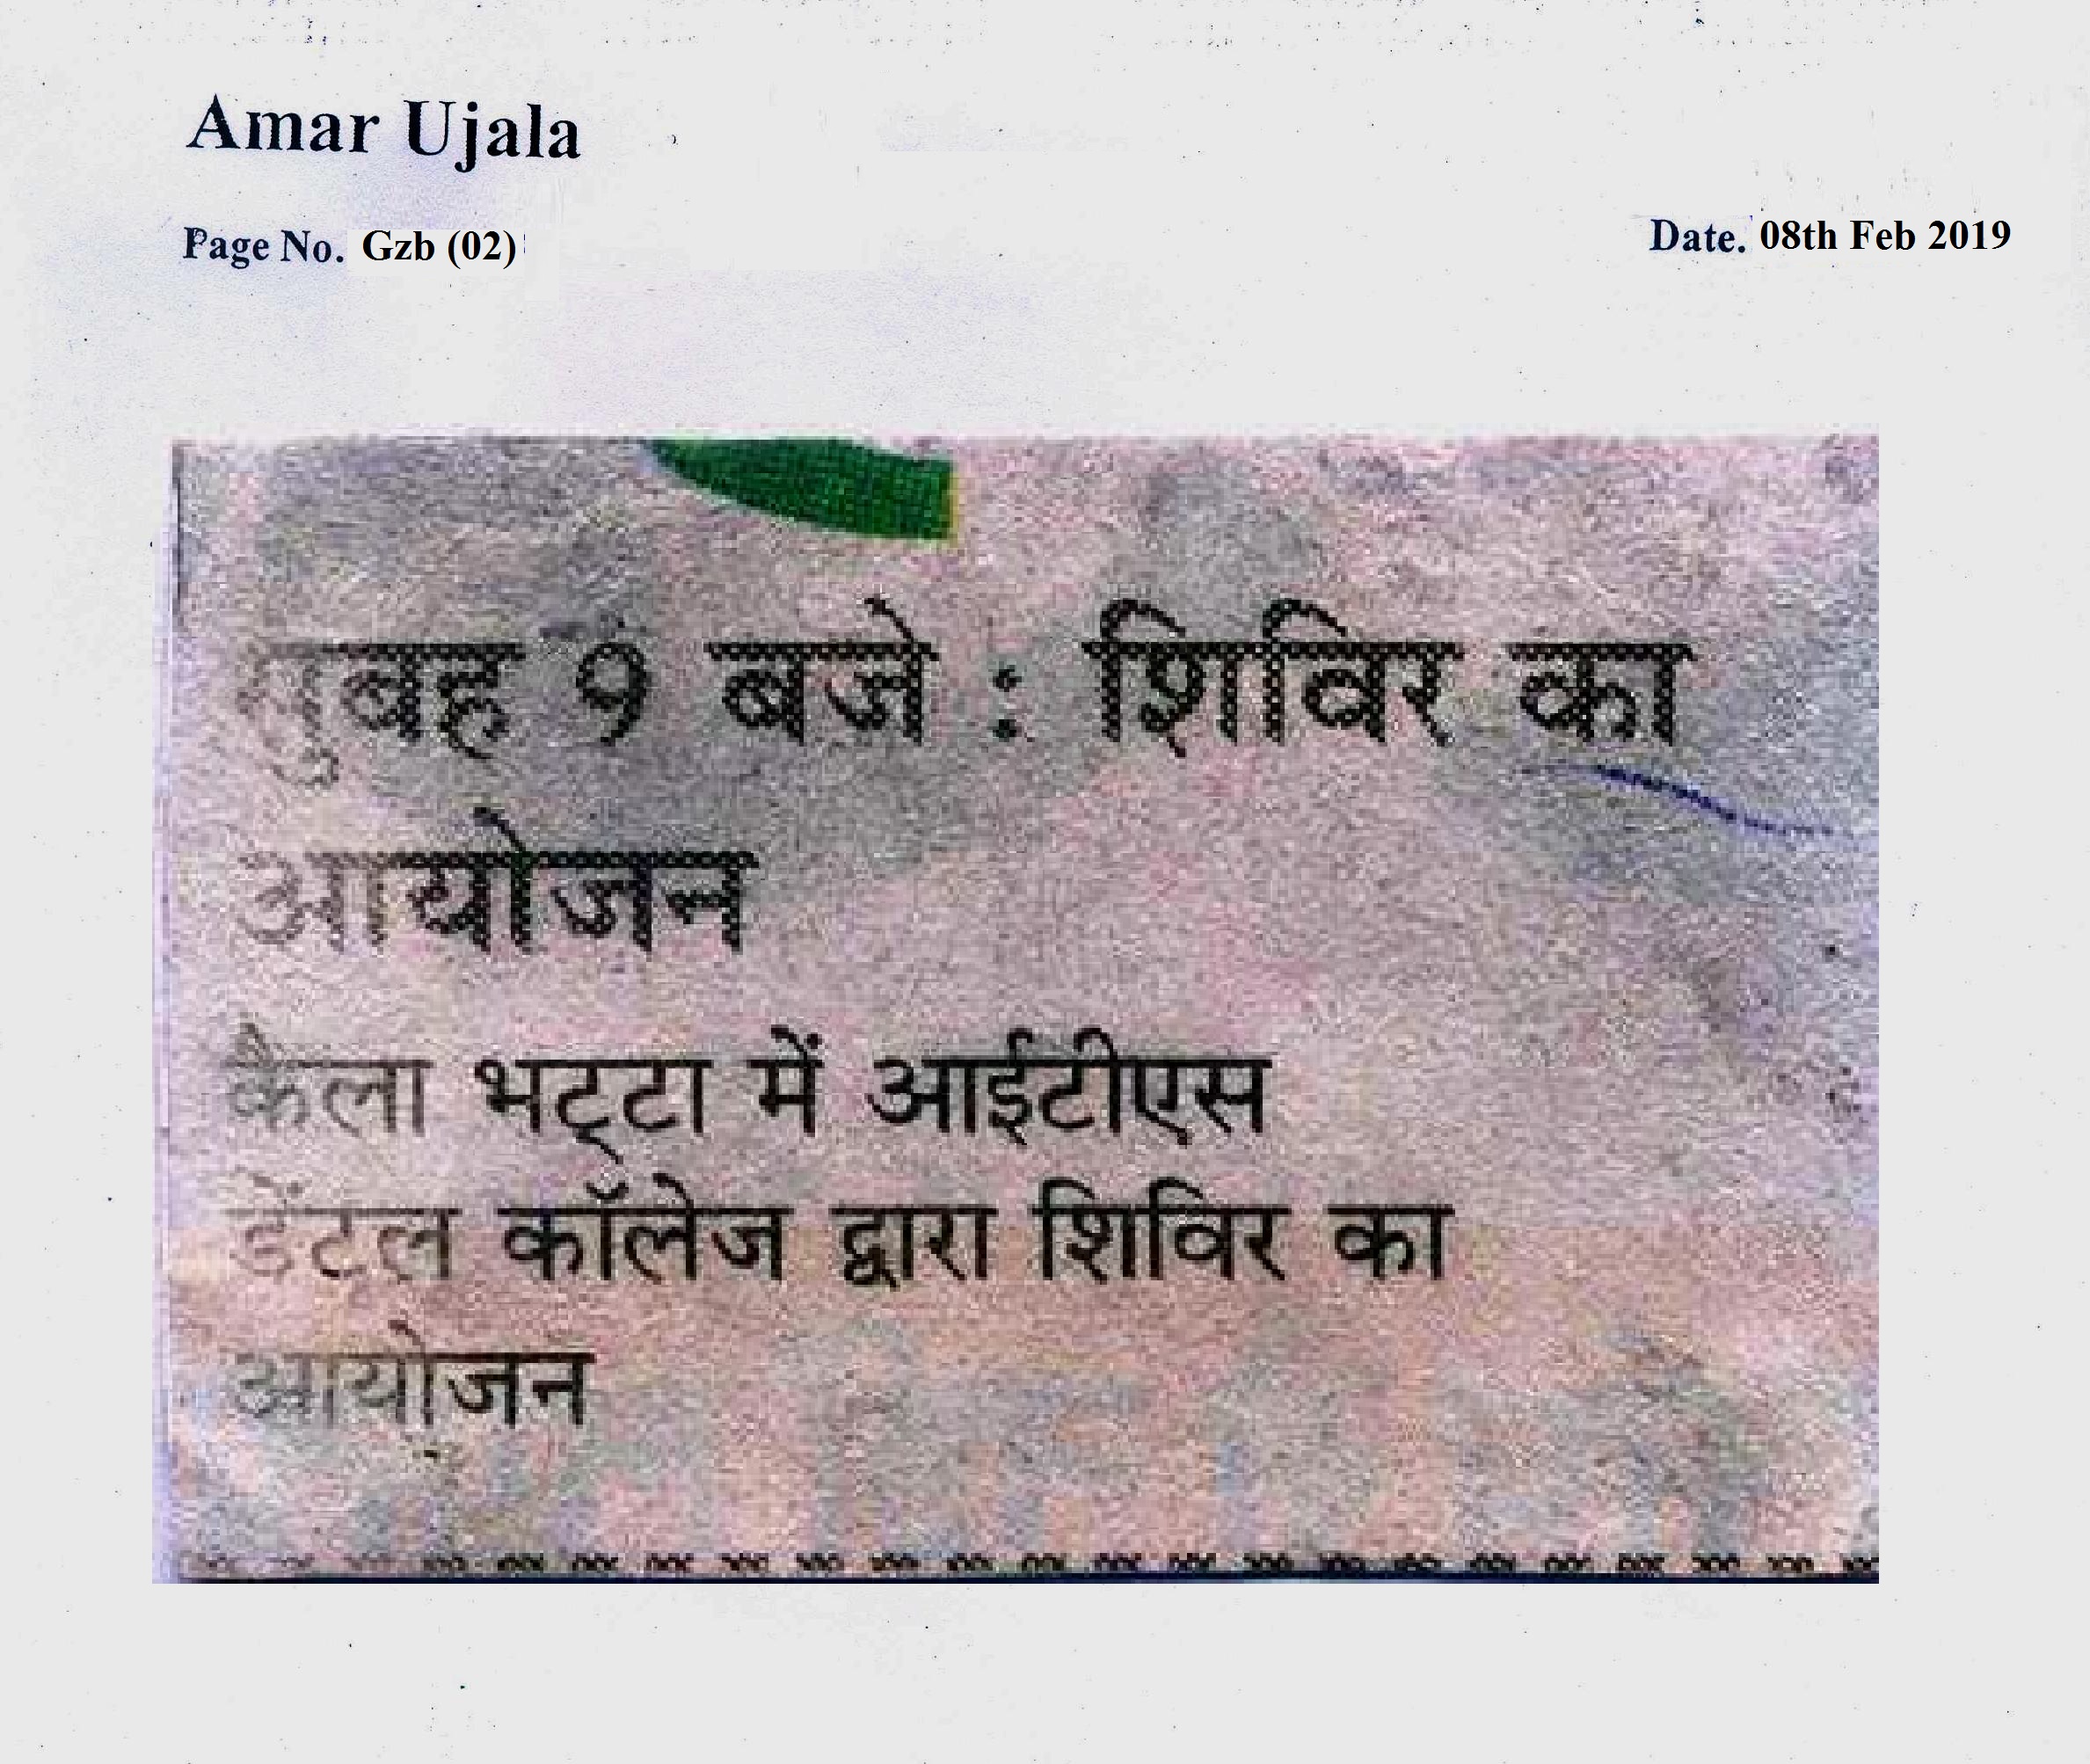 Amar Ujala
Page No. Gzb (02)
Date. 08th Feb 2019
सुबह 9 बजे : शिविर का
आयोजन
कैला भट्टा में आईटीएस
डेंटल कॉलेज द्वारा शिविर का
आयोजन